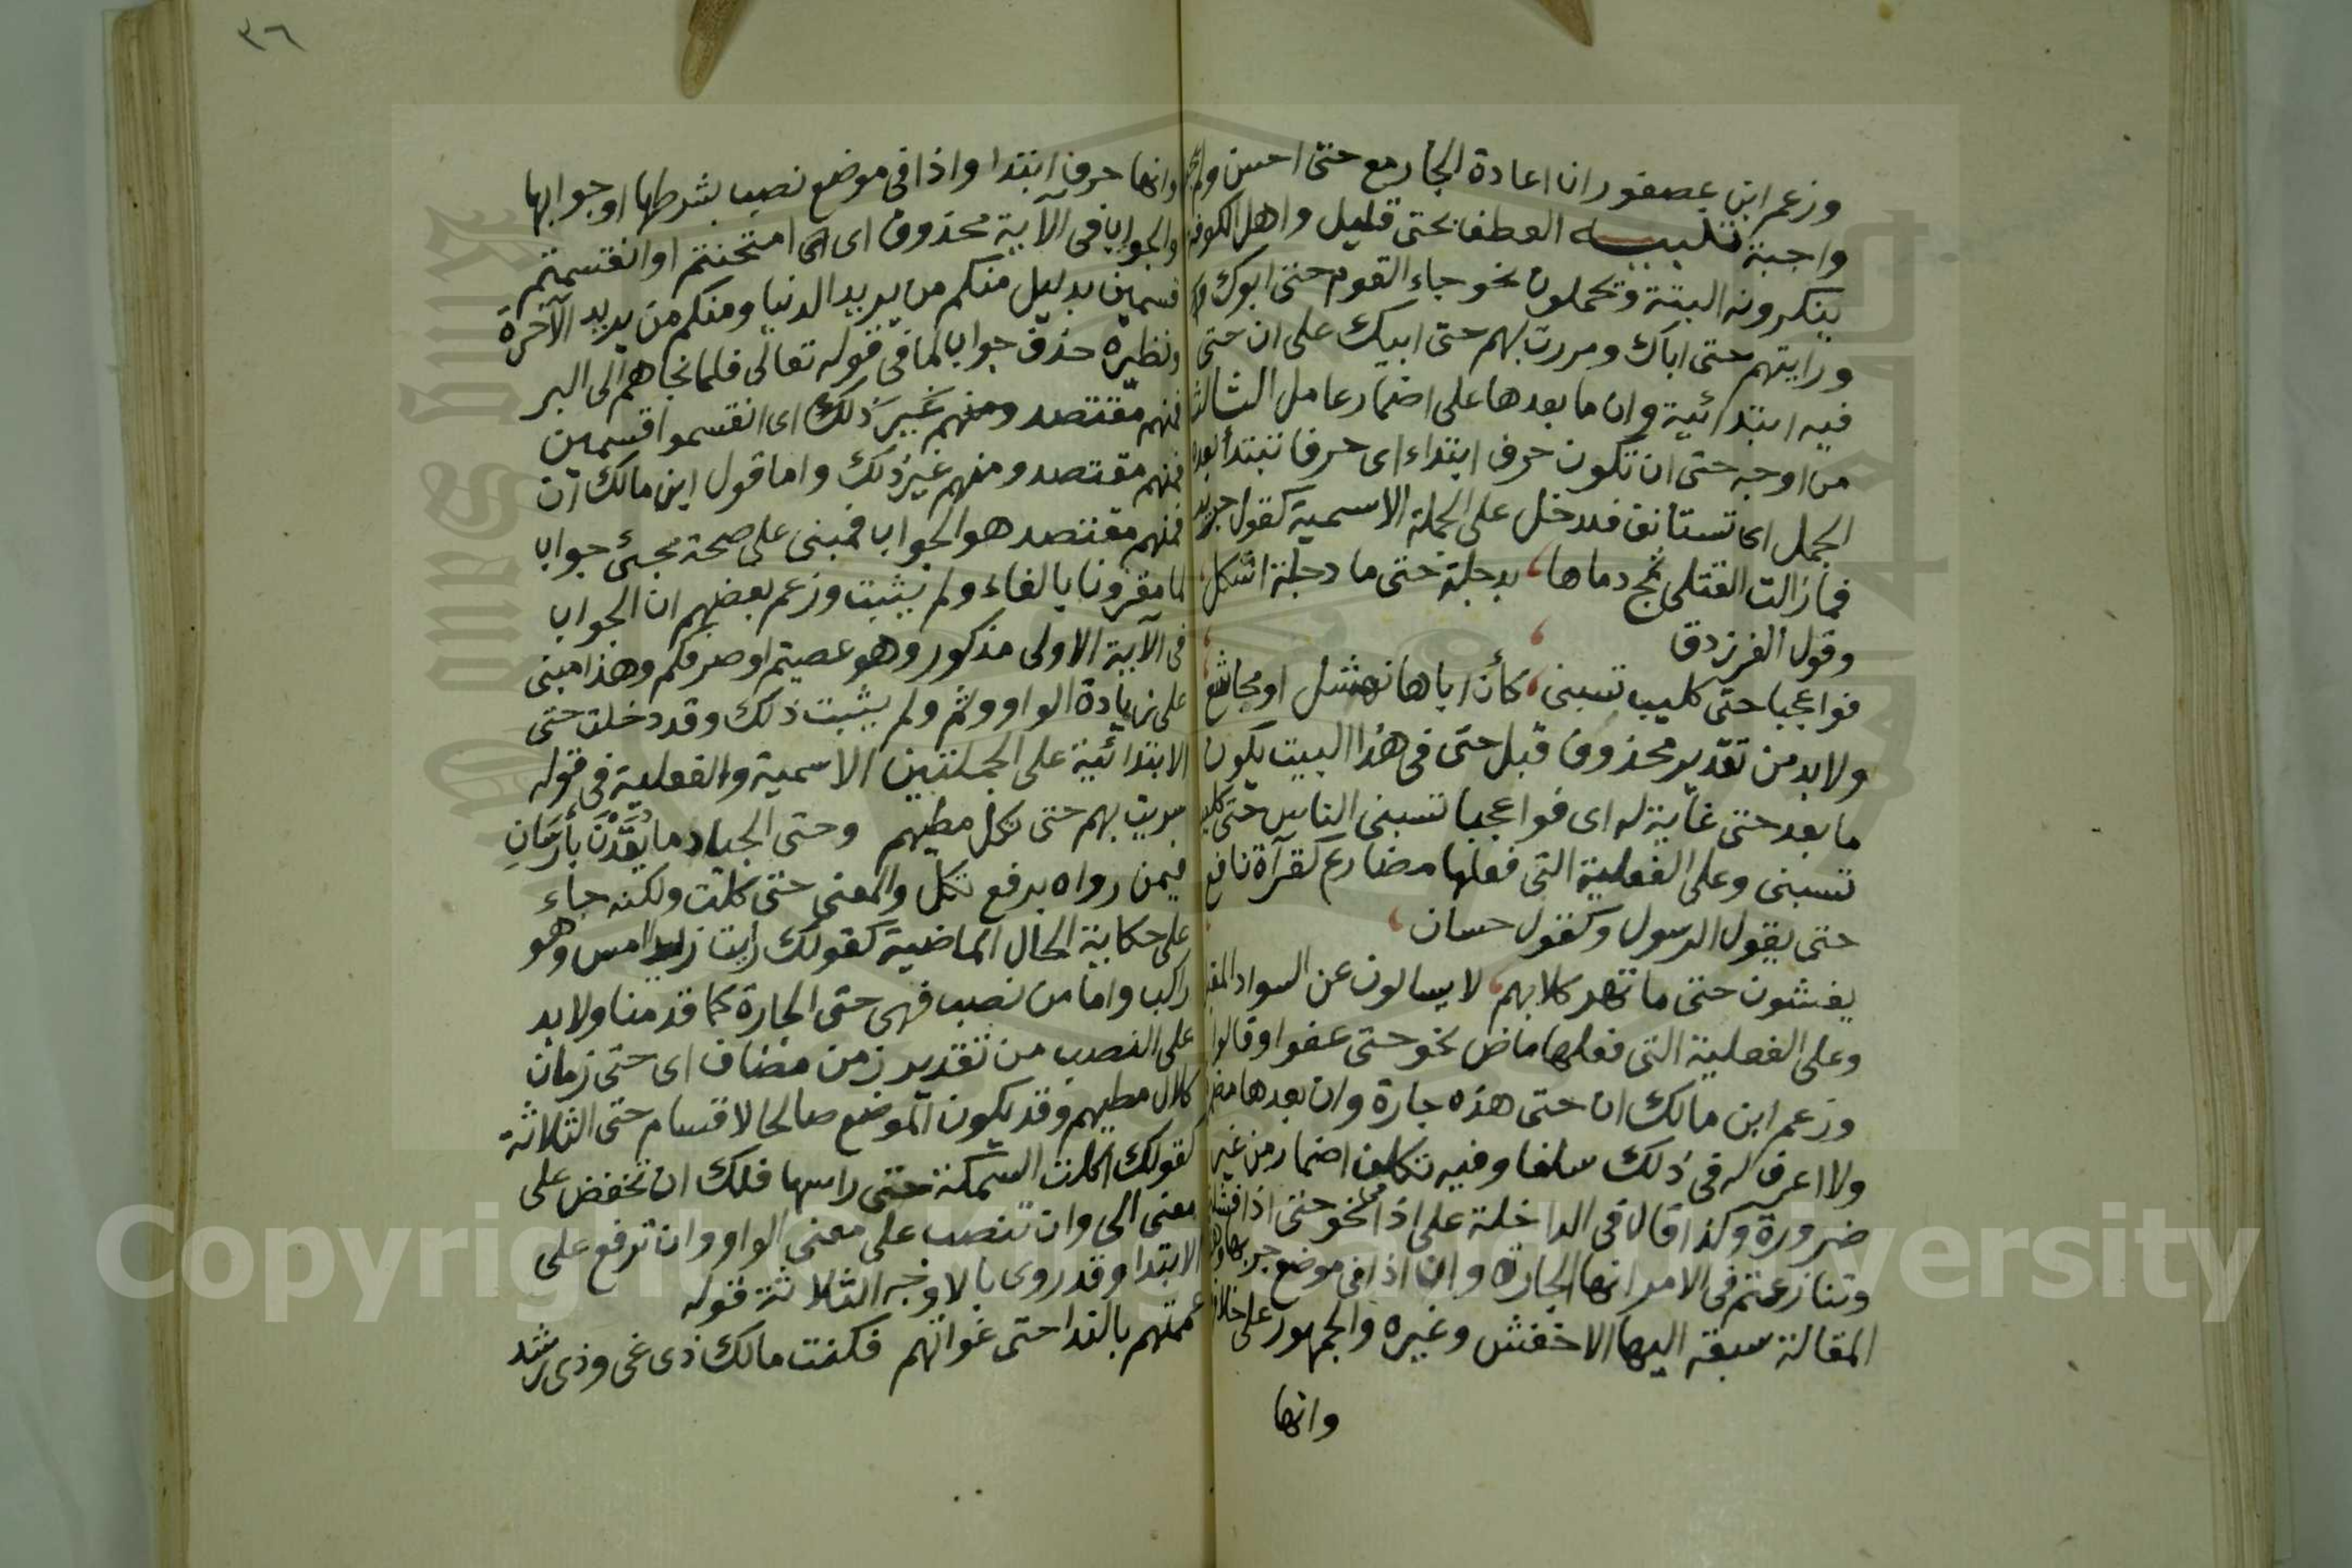 وزعم ابن عصفور ان اعادة الجار مع حتى احسن ولم
واجبة تنبيه العطف بحتى قليل واهل الكوفة
ينكرونه البتة ويحملون نحو جاء القوم حتى ابوك
ورايتهم حتى اباك ومررت بهم حتى ابيك على ان حتى
فيه ابتدائية وان ما بعدها على اضمار عامل الثالث
من اوجه حتى ان تكون حرف ابتداء اى حرفا تبتدأ بعده
الجمل اى تستانف فتدخل على الجملة الاسمية كقول جرير
فما زالت القتلى تمج دماها، بدجلة حتى ما دجلة اشكل،
وقول الفرزدق
فواعجبا حتى كليب تسبنى، كأن اباها نهشل او مجاشع
ولا بد من تقدير محذوف قبل حتى فى هذا البيت يكون
ما بعد حتى غاية له اى فواعجبا تسبنى الناس حتى كليب
تسبنى وعلى الفعلية التى فعلها مضارع كقرآة نافع
حتى يقول الرسول وكقول حسان،
يغشون حتى ما تهر كلابهم، لا يسالون عن السواد المقبل
وعلى الفعلية التى فعلها ماض نحو حتى عفوا وقالوا
وزعم ابن مالك ان حتى هذه جارة وان بعدها مضمرة
ولا اعرف له فى ذلك سلفا وفيه تكلف اضمار من غير
ضرورة وكذا قال فى الداخلة على اذا فى نحو حتى اذا فشلتم
وتنازعتم فى الامر انها الجارة وان اذا فى موضع جر بها وهذه
المقالة سبقه اليها الاخفش وغيره والجمهور على خلافها
وانها
٣٦
وانها حرف ابتدا واذا فى موضع نصب بشرطها او جوابها
والجواب فى الآية محذوف اى امتحنتم او انقسمتم
قسمين بدليل منكم من يريد الدنيا ومنكم من يريد الآخرة
ونظيره حذف جواب لما فى قوله تعالى فلما نجاهم الى البر
فمنهم مقتصد ومنهم غير ذلك اى انقسموا قسمين
فمنهم مقتصد ومنهم غير ذلك واما قول ابن مالك ان
فمنهم مقتصد هو الجواب فمبنى على صحة مجئ جواب
لما مقرونا بالفاء ولم يثبت وزعم بعضهم ان الجواب
فى الآية الاولى مذكور وهو عصيتم او صرفكم وهذا مبنى
على زيادة الواو وثم ولم يثبت ذلك وقد دخلت حتى
الابتدائية على الجملتين الاسمية والفعلية فى قوله
سريت بهم حتى تكل مطيهم وحتى الجياد ما يُقَدْنَ بأرسان
فيمن رواه برفع تكل والمعنى حتى كلت ولكنه جاء
على حكاية الحال الماضية كقولك رايت زيدا امس وهو
راكب واما من نصب فهى حتى الجارة كما قدمنا ولا بد
على النصب من تقدير زمن مضاف اى حتى زمان
كلال مطيهم وقد يكون الموضع صالحا لاقسام حتى الثلاثة
كقولك اكلت السمكة حتى راسها فلك ان تخفض على
معنى الى وان تنصب على معنى الواو وان ترفع على
الابتدا وقد روى بالاوجه الثلاثة قوله
عممتهم بالندا حتى غواتهم فكنت مالك ذى غى وذى رشد